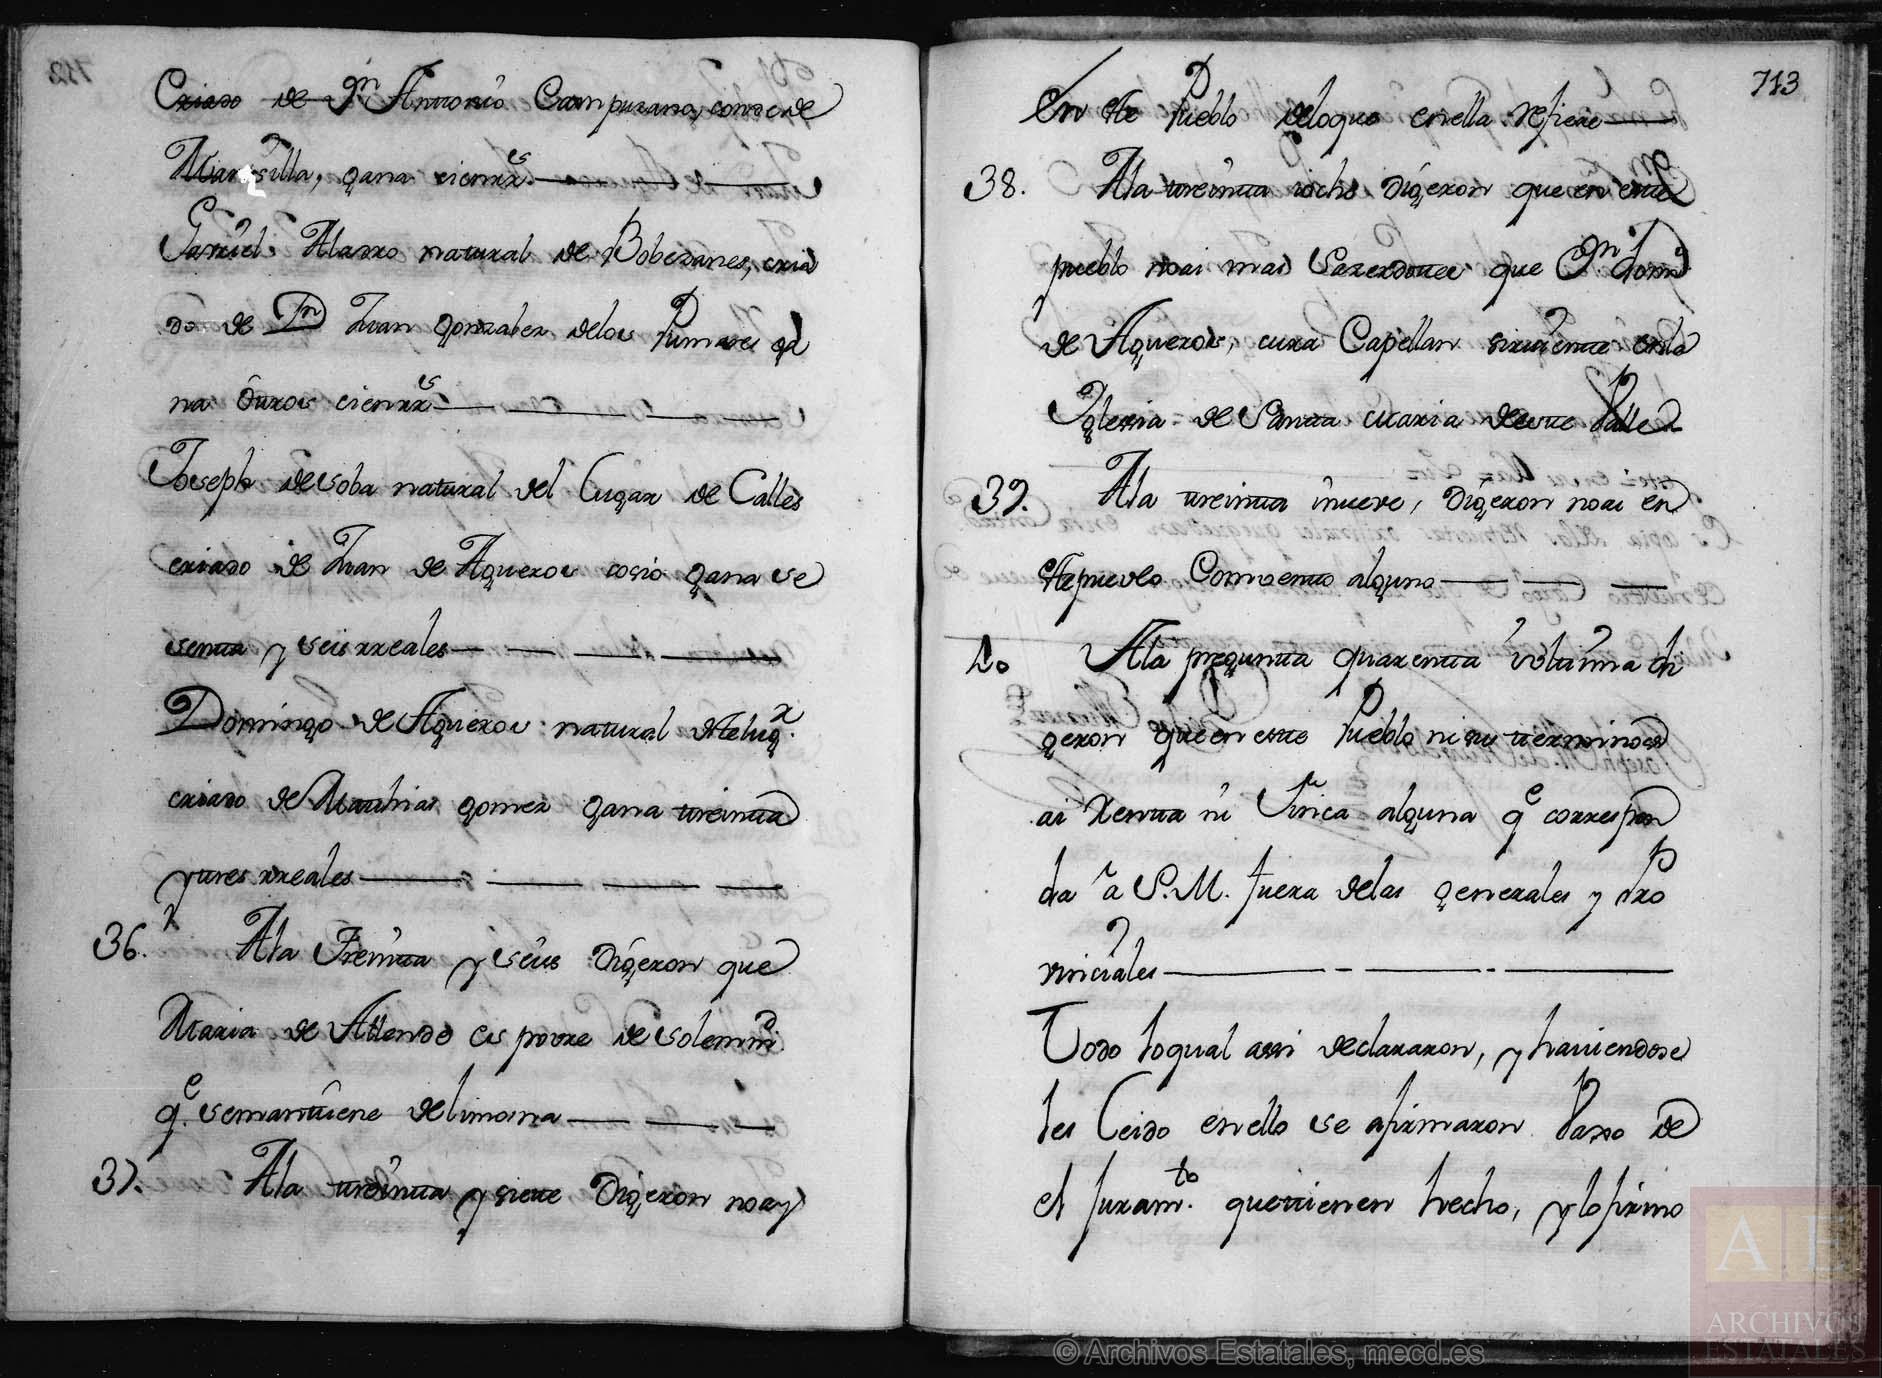 Criado de Dn Antonio Campuzano, conde de
Mansilla, gana cien rrs
Gabriel Alasro natural de Bobezanes, cria
do de Dn Juan Gonzalez delos Pumares ga
na ôtros cien rrs
Joseph de soba natural del Lugar de Calles
criado de Juan de Agueros cosio gana se
senta y seis rreales
Domingo de Agueros natural destelugr.
criado de Mathias gomez gana treinta
y tres rreales
36. Ala Treinta y seis Digeron que
Maria de Allendo es povre de solemnd
qe. semantiene delimosna
37. Ala treinta y siete Digeron noay
713
En ste Pueblo deloque enella refiere
38. Ala treinta iocho digeron que en este
pueblo noai mas Sazerdotte que Dn Domo
de Agueros, cura Capellan sirviente enla
Yglesia de Santa Maria deeste Valle
39. Ala treinta inueve, Digeron noai en
stepuevlo Comventto alguno
40 Ala pregunta quarenta i vltima di
geron que en este Pueblo ni su ttermino
ai Renta ni finca alguna qe correspon
da a S.M. fuera delas generales y Pro
vinciales
Todo loqual assi declararon, y haviendose
les Leido enello se afirmaron Vaxo de
el juramto. que tienen hecho, y lo firmo
© Archivos Estatales, mecd.es
AE
ARCHIVOS
ESTATALES